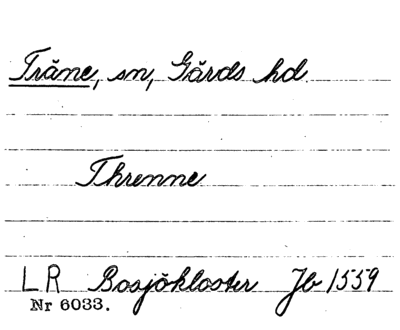 Träne, sn, Gärds hd
Threnne
LR Bosjökloster Jb 1559
Nr 6033.